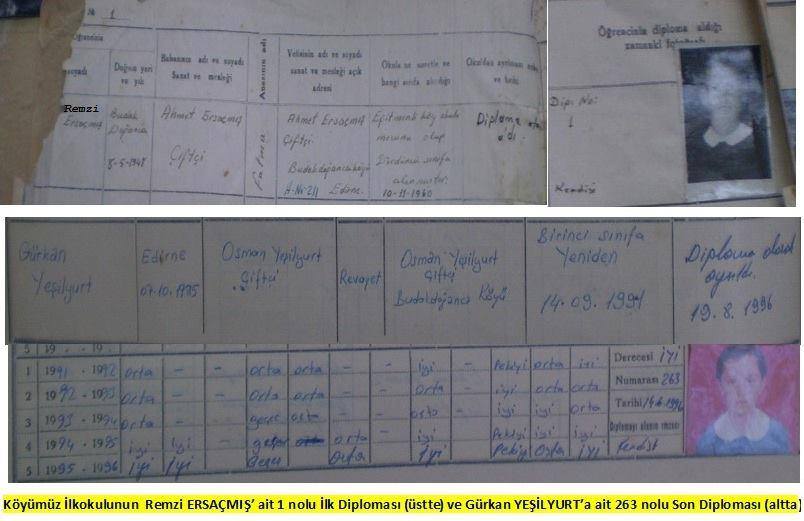 № 1
Öğrencinin
soyadı
Doğum yeri ve yılı
Babasının adı ve soyadı Sanat ve mesleği
Anasının adı
Velisinin adı ve soyadı sanat ve mesleği açık adresi
Okula ne suretle ve hangi sınıfa alındığı
Remzi Ersaçmış
Budak Doğanca
8-5-1948
Ahmet Ersaçmış
Çiftçi
Fatma
Ahmet Ersaçmış
Çiftçi
Budakdoğanca köyü
H-No:211 Edirne
10-11-1960
Diploma
Öğrencinin diploma aldığı
zamanki fotoğrafı
Dip. No:
1
Kendisi
Gürkan Yeşilyurt
Edirne
07.10.1985
Osman Yeşilyurt
Çiftçi
Revayet
Osman Yeşilyurt
Çiftçi
Budakdoğanca Köyü
Birinci sınıfa
Yeniden
14.09.1991
Diploma alarak ayrıldı.
19.8.1996
5 19 . . - 19 .
1 1991 - 1992 orta - - orta orta - - iyi - Pekiyi orta iyi
2 1992 - 1993 orta - - orta orta - - orta - iyi orta orta
3 1993 - 1994 orta - - geçer orta - - orta - iyi iyi orta
4 1994 - 1995 iyi iyi - geçer orta - iyi - Pekiyi iyi orta
5 1995 - 1996 iyi iyi - Geçer orta - iyi - Pekiyi orta iyi
Derecesi iyi
Numarası 263
Tarihi 14.6.1996
Diplomayı alanın imzası
Kendisi
Köyümüz İlkokulunun Remzi ERSAÇMIŞ’ ait 1 nolu İlk Diploması (üstte) ve Gürkan YEŞİLYURT’a ait 263 nolu Son Diploması (altta)